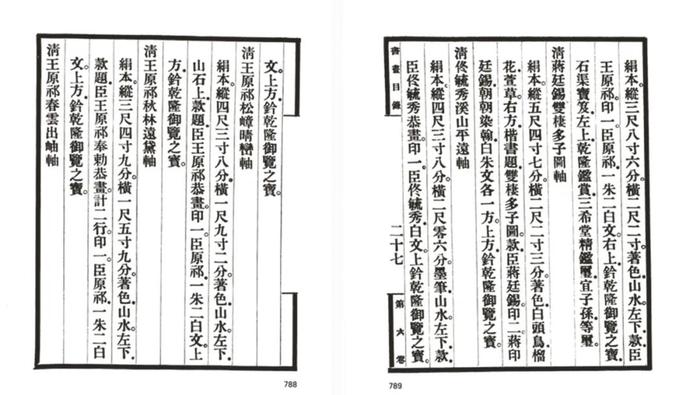 文。上方鈐乾隆御覽之寶。
清王原祁松嶂晴巒軸
絹本。縱四尺三寸八分。橫一尺九寸二分。著色山水。左下
山石上。款題臣王原祁恭畫。印一。臣原祁。一朱二白文。上
方鈐乾隆御覽之寶。
清王原祁秋林遠黛軸
絹本。縱三尺四寸九分。橫一尺五寸九分。著色山水。左下
款題臣王原祁奉勅恭畫。計二行。印一。臣原祁。一朱二白
文。上方鈐乾隆御覽之寶。
清王原祁春雲出岫軸
788
書畫目錄
二十七
第六卷
絹本。縱三尺八寸六分。橫二尺二寸。著色山水。左下款臣
王原祁。印一。臣原祁。一朱二白文。右上鈐乾隆御覽之寶。
石渠寶笈。左上乾隆鑑賞。三希堂精鑑璽。宜子孫等璽。
清蔣廷錫雙棲多子圖軸
絹本。縱五尺四寸七分。橫二尺二寸三分。著色白頭鳥榴
花萱草。右方楷書題雙棲多子圖。款臣蔣廷錫。印二。蔣印
廷錫。朝朝染翰。白朱文各一方。上方鈐乾隆御覽之寶。
清佟毓秀溪山平遠軸
絹本。縱四尺三寸八分。橫二尺零六分。墨筆山水。左下款
臣佟毓秀恭畫。印一。臣佟毓秀。白文。上鈐乾隆御覽之寶。
789